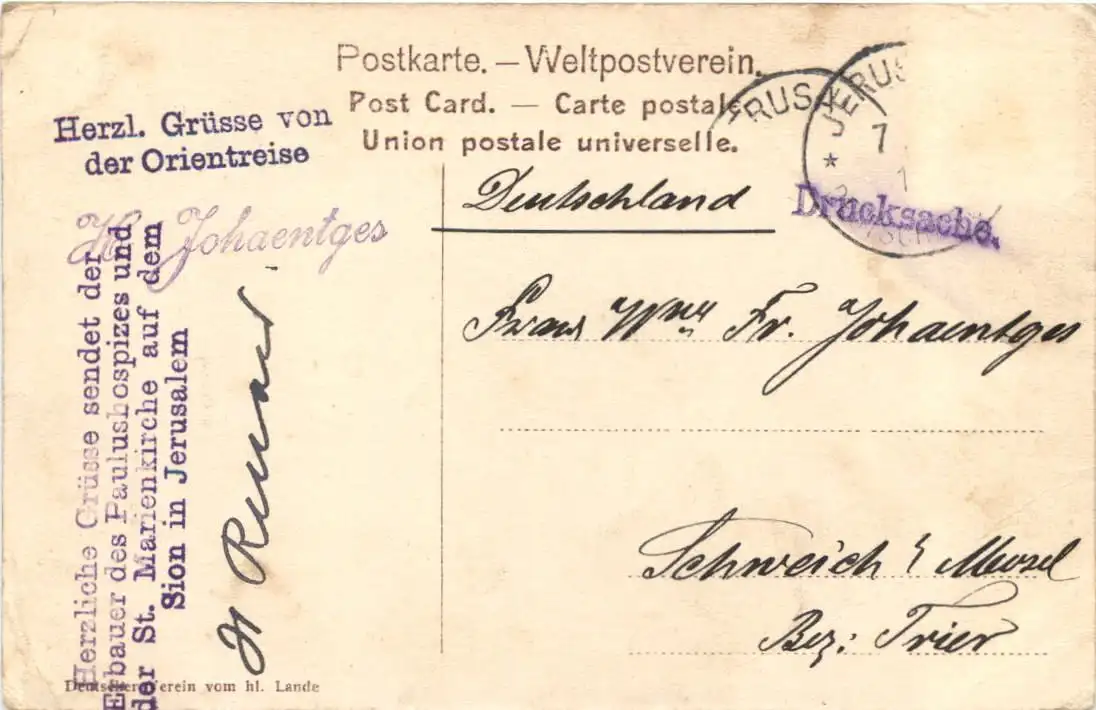 Postkarte. — Weltpostverein.
Post Card. — Carte postale.
Union postale universelle.
Herzl. Grüsse von
der Orientreise
Johaentges
Herzliche Grüsse sendet der
Erbauer des Paulushospizes und
der St. Marienkirche auf dem
Sion in Jerusalem
H Renard
Deutscher Verein vom hl. Lande
JERUS
7
Drucksache.
Deutschland
Frau Wwe Fr. Johaentges
Schweich / Mosel
Bez: Trier